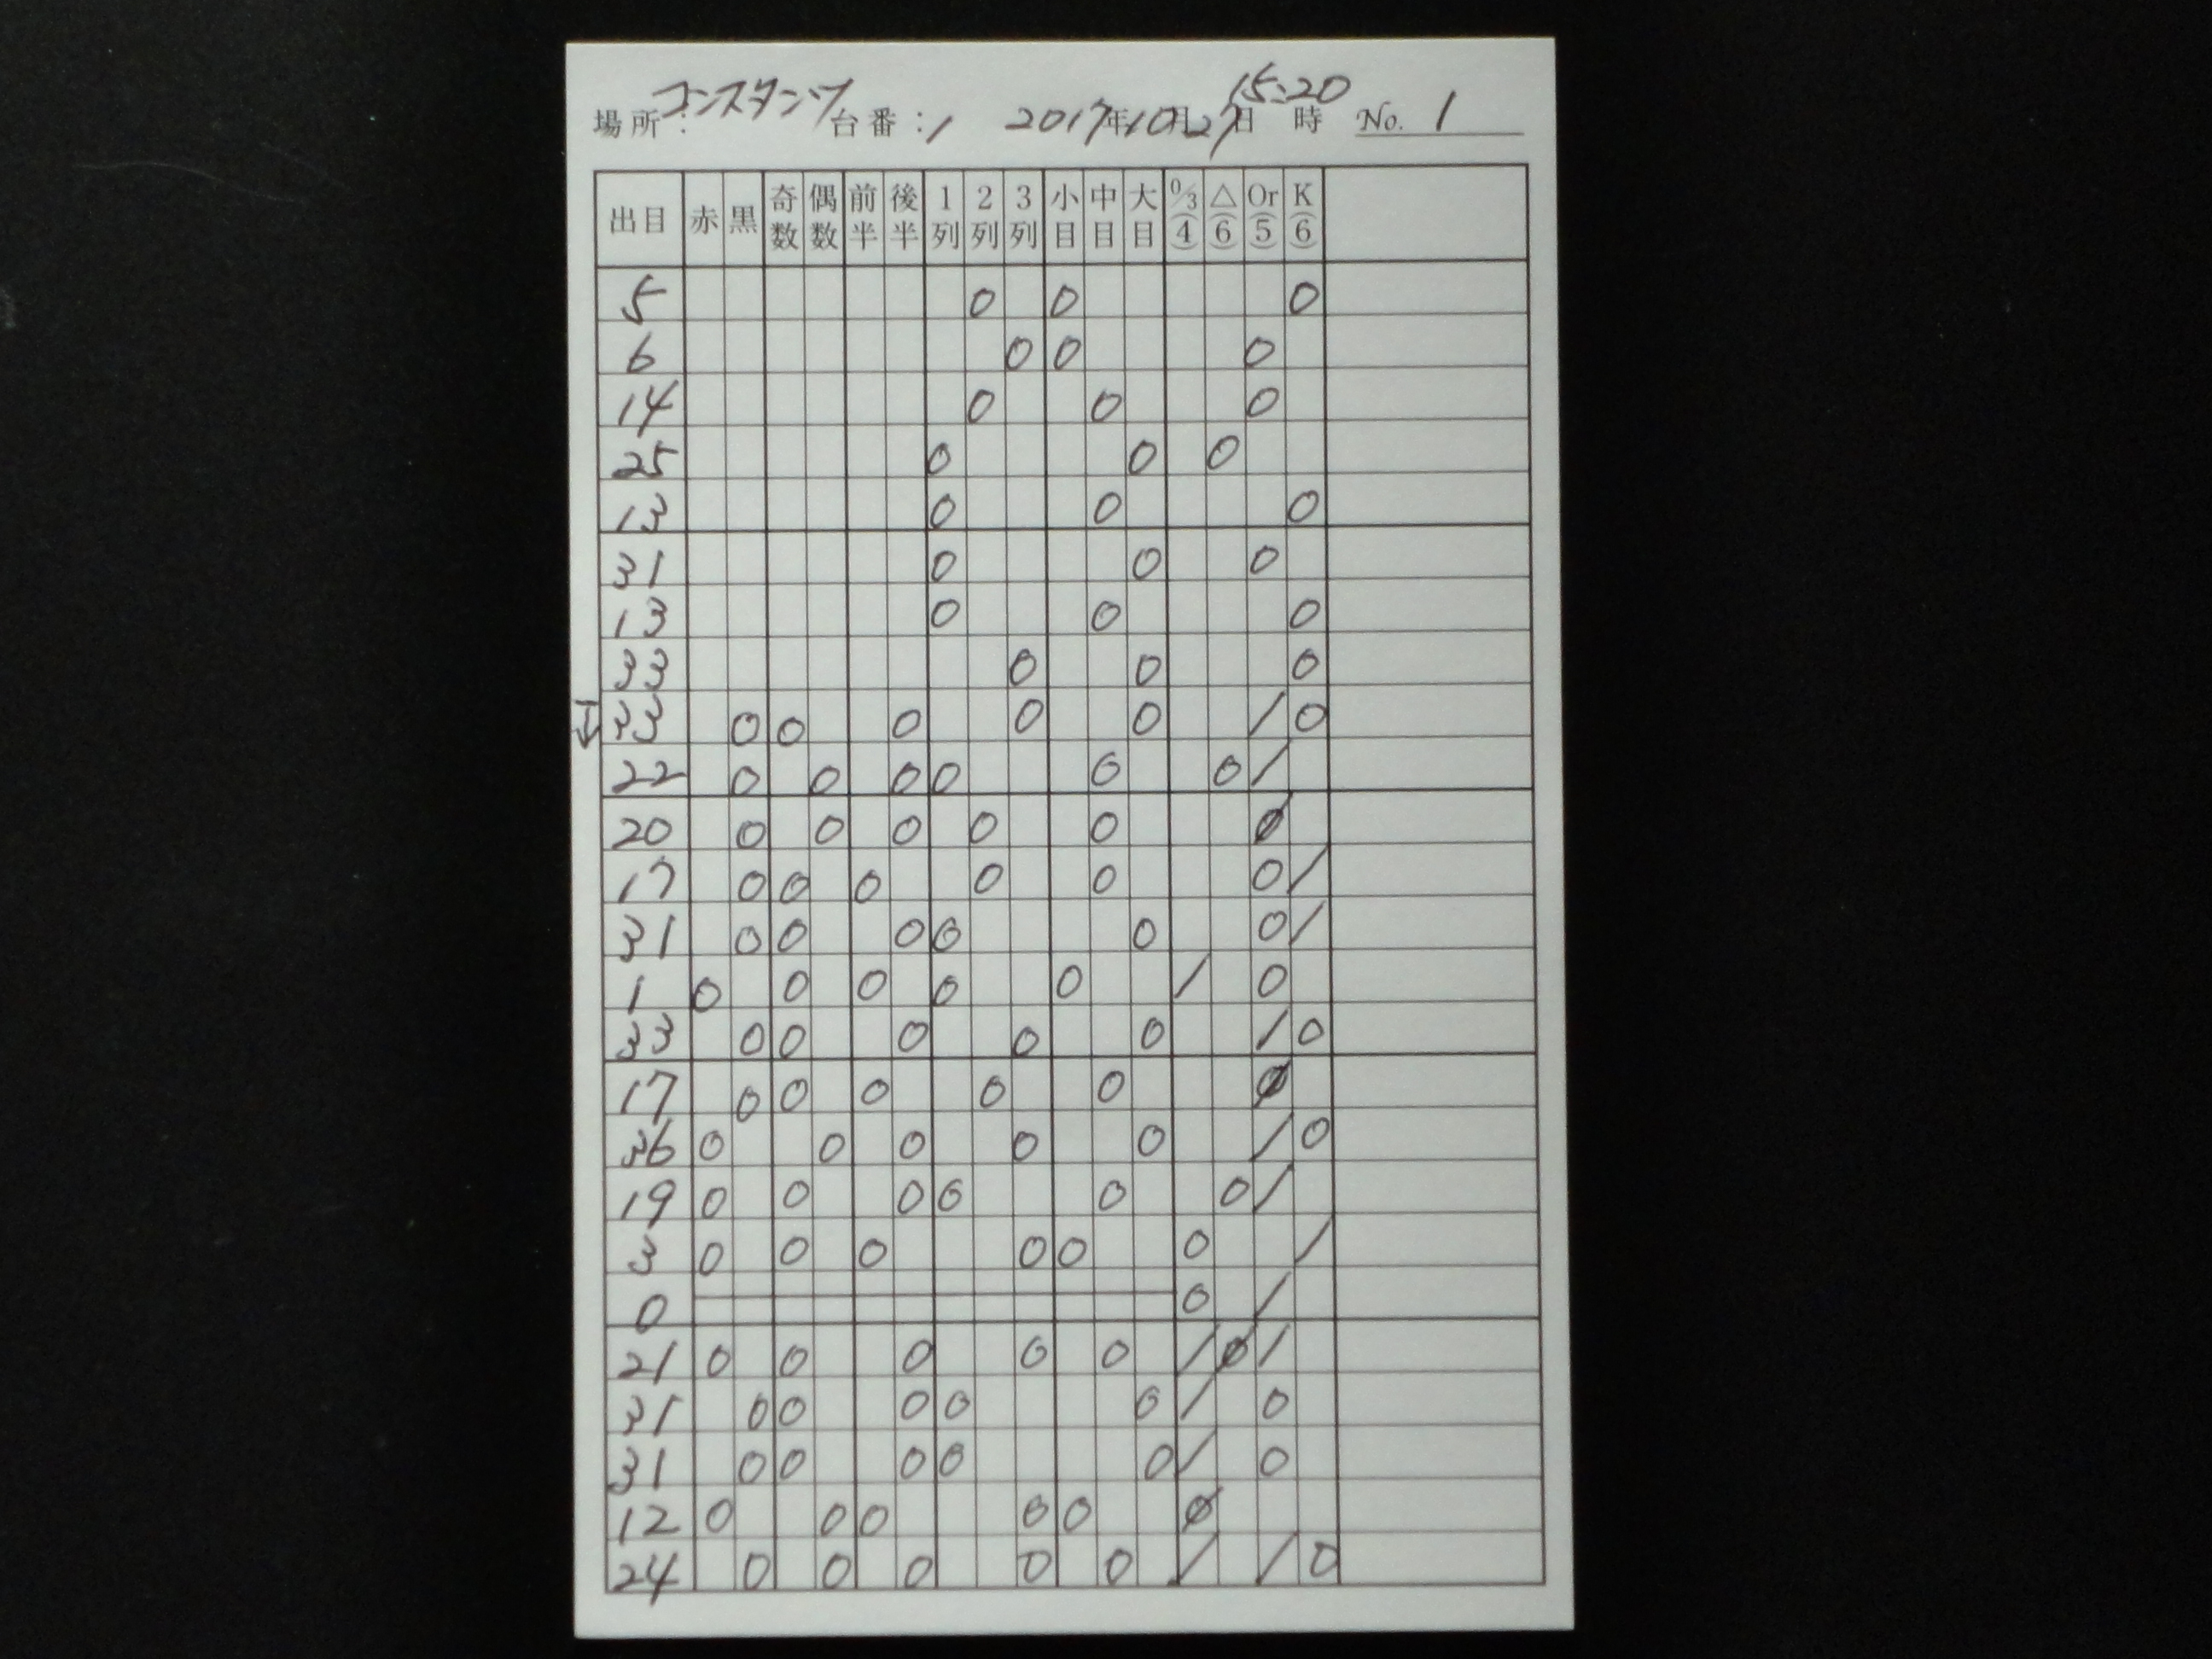 場所：コンスタンツ 台番：1 2017年10月27日 15:20時 No. 1
出目 赤 黒 奇数 偶数 前半 後半 1列 2列 3列 小目 中目 大目 0/3(4) △(6) Or(5) K(6)
5 0 0 0
6 0 0 0
14 0 0 0
25 0 0 0
13 0 0 0
31 0 0 0
13 0 0 0
33 0 0 0
33 0 0 0 0 0 / 0
22 0 0 0 0 0 0 /
20 0 0 0 0 0 Ø
17 0 0 0 0 0 0 /
31 0 0 0 0 0 0 /
1 0 0 0 0 0 / 0
33 0 0 0 0 0 / 0
17 0 0 0 0 0 Ø
36 0 0 0 0 0 / 0
19 0 0 0 0 0 0 /
3 0 0 0 0 0 0 /
0 0 /
21 0 0 0 0 0 / Ø /
31 0 0 0 0 0 / 0
31 0 0 0 0 0 / 0
12 0 0 0 0 0 Ø
24 0 0 0 0 0 / / 0